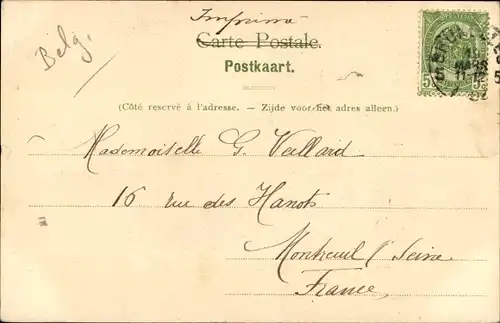 Imprimé
Belg.
Carte Postale.
Postkaart.
(Côté reservé à l'adresse. – Zijde voor het adres alleen.)
Mademoiselle G. Veillard
16 rue des Hanots
Montreuil s/ Seine
France